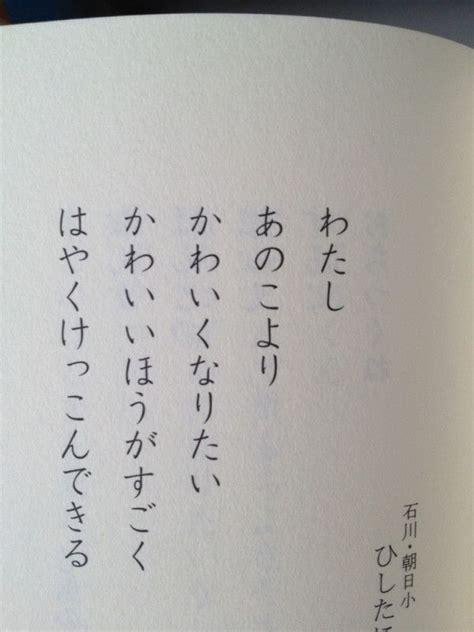 石川・朝日小
ひした
わたし
あのこより
かわいくなりたい
かわいいほうがすごく
はやくけっこんできる